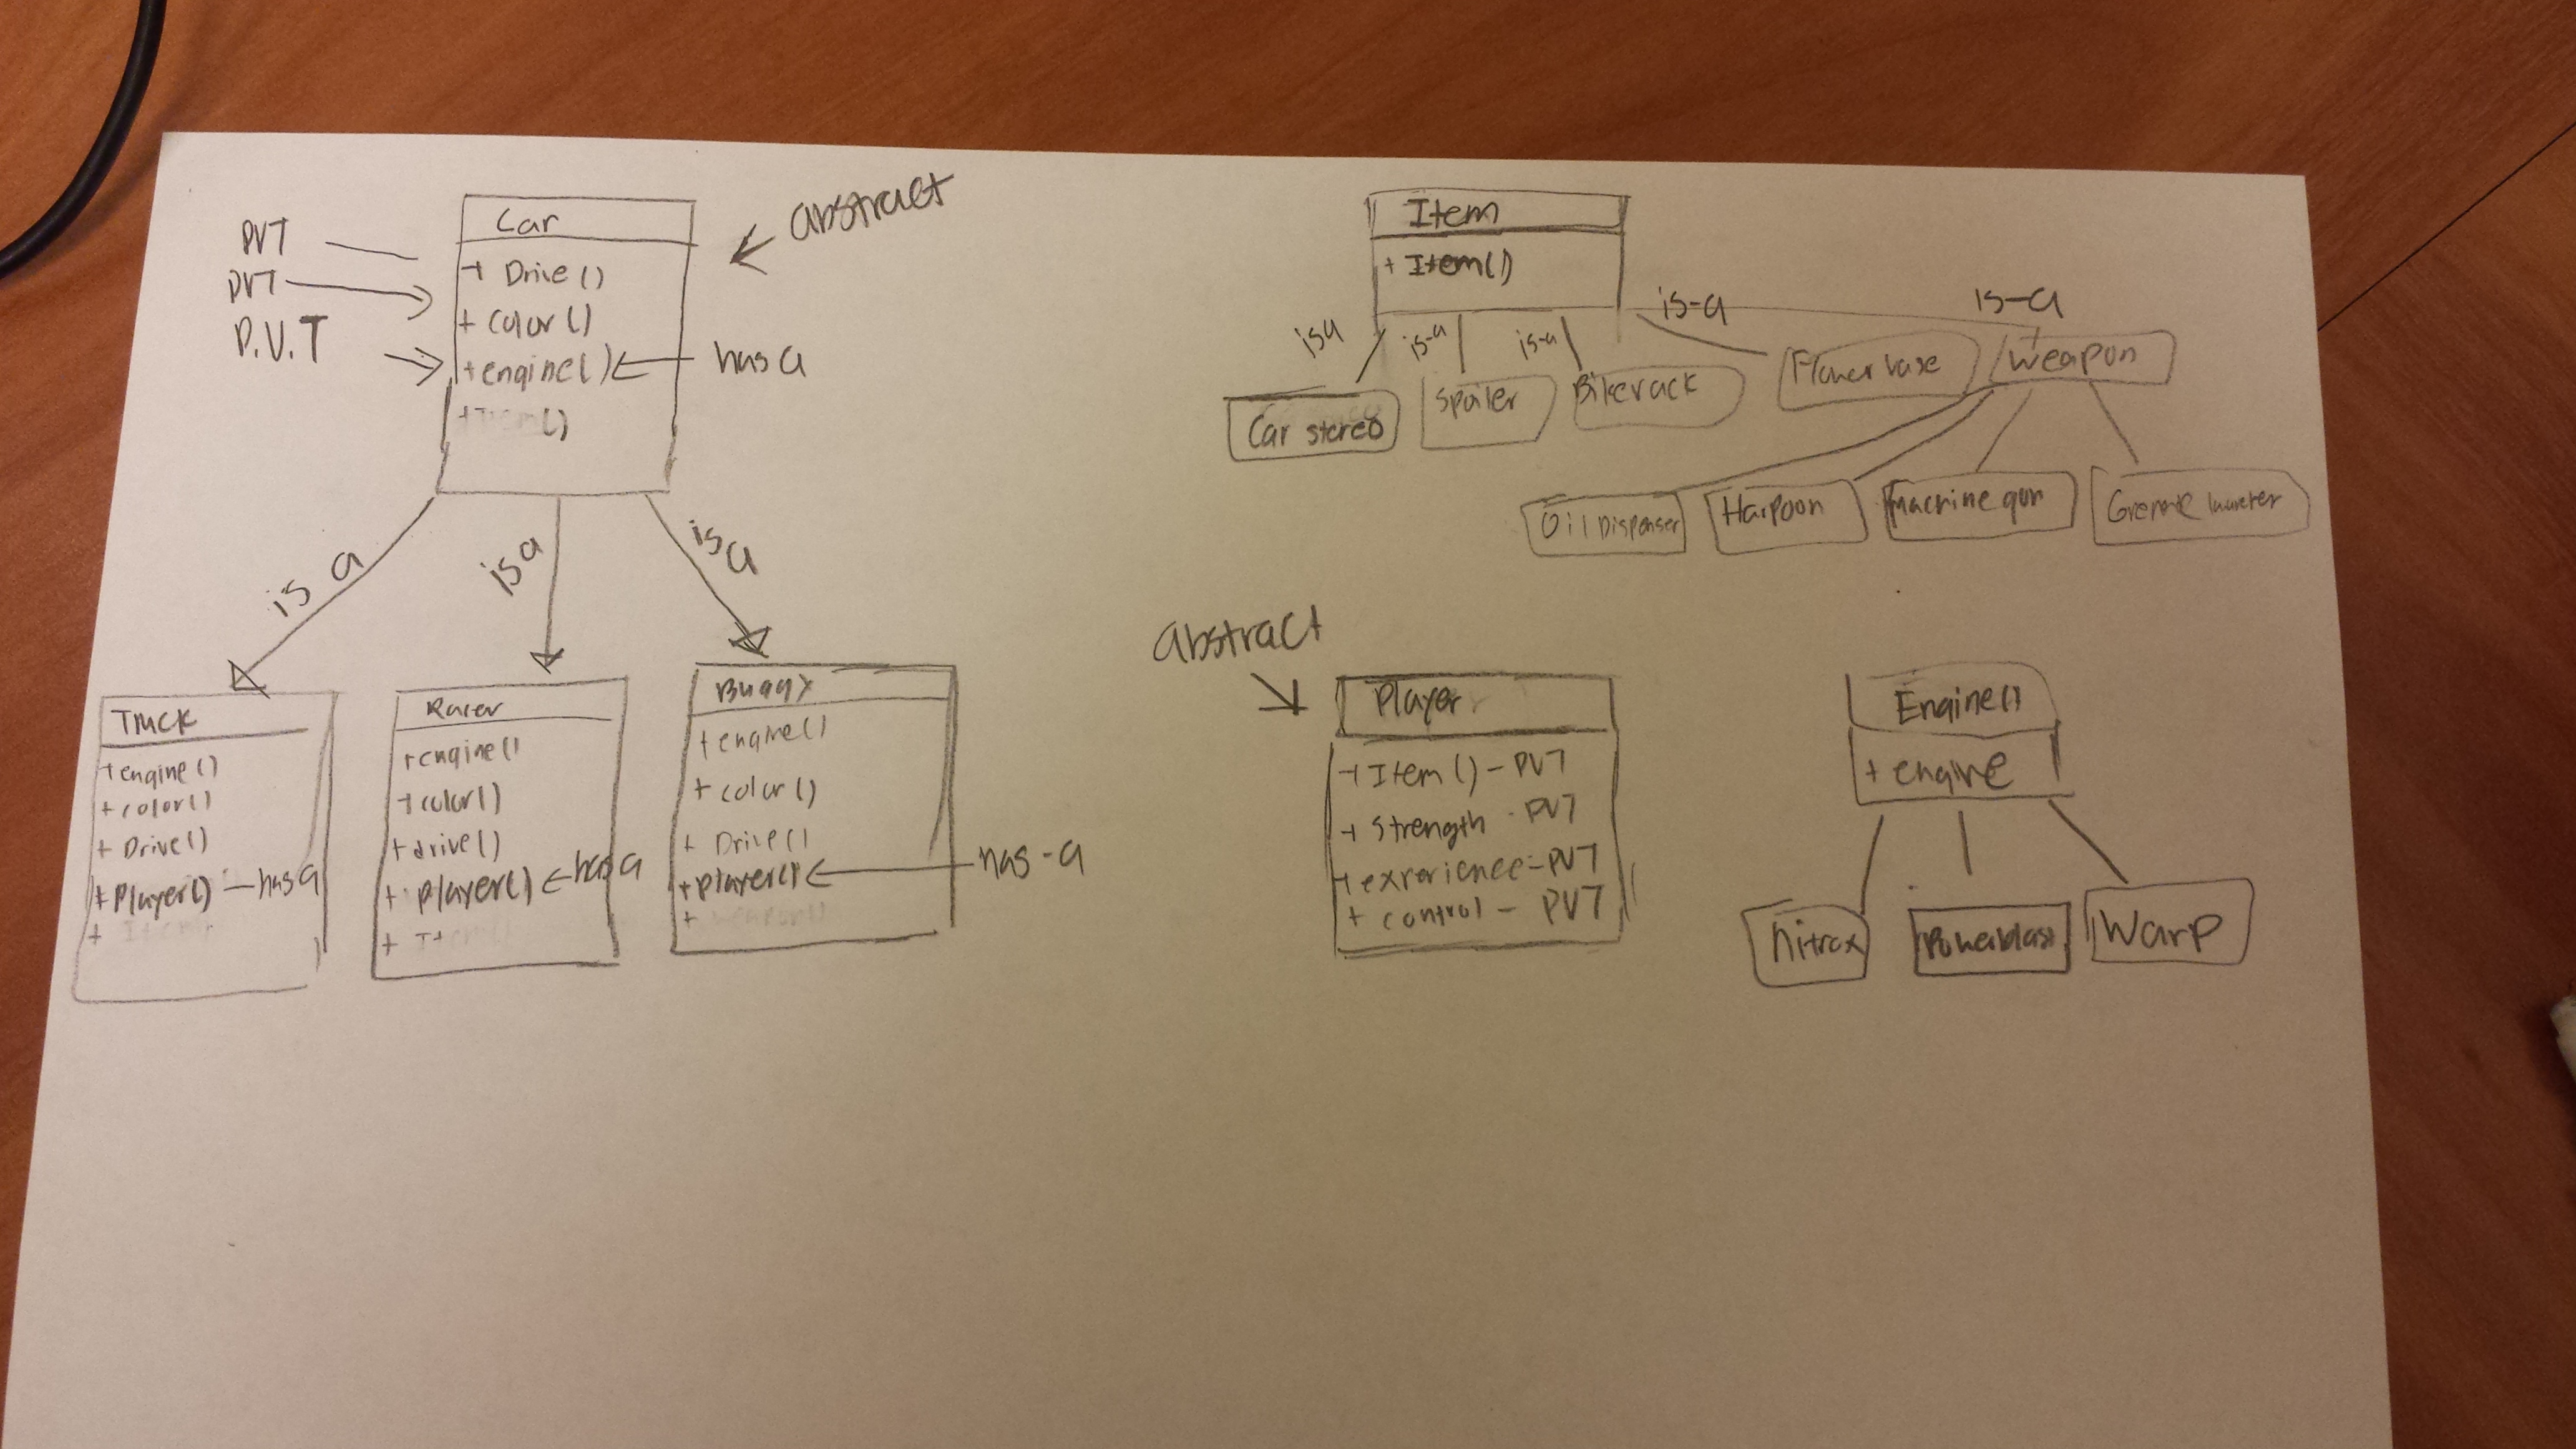 PVT
PVT
P.V.T
Car
+ Drive()
+ color()
+ engine()
has a
+ Item()
abstract
is a
is a
is a
Truck
+ engine()
+ color()
+ Drive()
+ Player() — has a
+ Item
Racer
+ engine()
+ color()
+ drive()
+ player() has a
+ Item()
Buggy
+ engine()
+ color()
+ Drive()
+ player()
has-a
+ weapon()
Item
+ Item()
is a
is-a
is-a
is-a
is-a
Car stereo
Spoiler
Bikerack
Flower vase
Weapon
Oil Dispenser
Harpoon
Machine gun
abstract
Player
+ Item() - PVT
+ Strength - PVT
+ experience - PVT
+ control - PVT
Engine()
+ engine
Nitrox
Powerblast
Warp